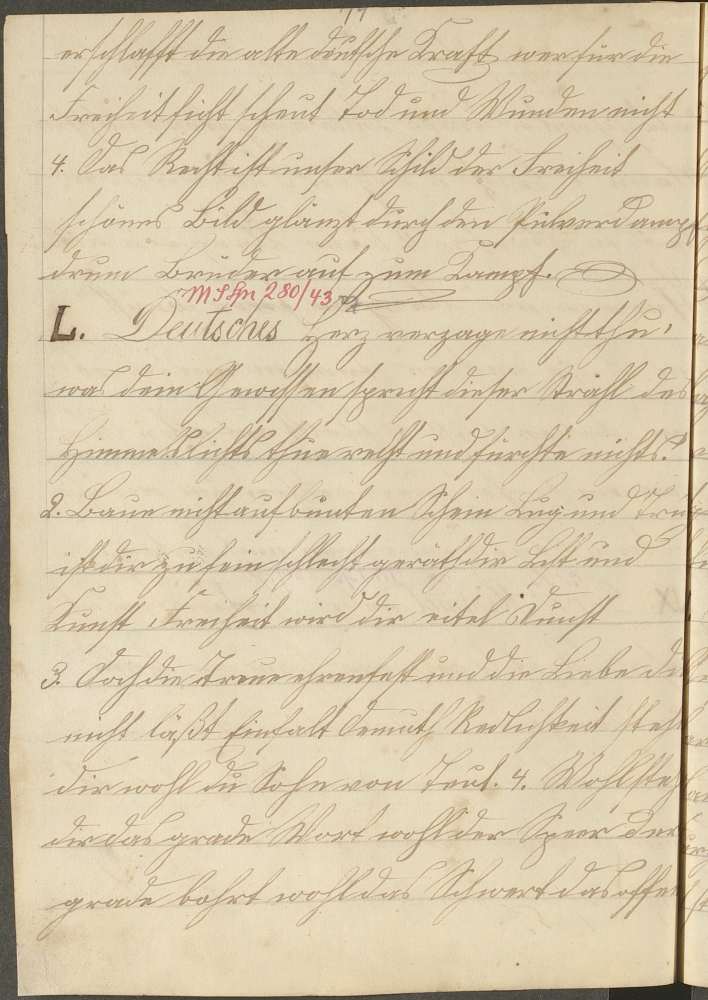 erschlafft die alte deutsche Kraft wer für die
Freiheit ficht scheut Tod und Wunden nicht
4. Das Recht ist unser Schild der Freiheit
schönes Bild glänzt durch den Pulverdampf
drum Brüder auf zum Kampf.
280/43
L. Deutsches Herz verzage nicht thu,
was dein Gewissen spricht dieser Strahl des
Himmelslichts thue recht und fürchte nichts!
2. Baue nicht auf bunten Schein Lug und Trug
ist dir zu fein schlecht geräth dir List und
Kunst Freiheit wird dir eitel Dunst
3. Doch die Treue ehrenfest und die Liebe die
nicht läßt Einfalt Demuth Redlichkeit steh
dir wohl du Sohn von Teut. 4. Wohl steht
dir das grade Wort wohl der Speer der
grade bohrt wohl das Schwert das offen